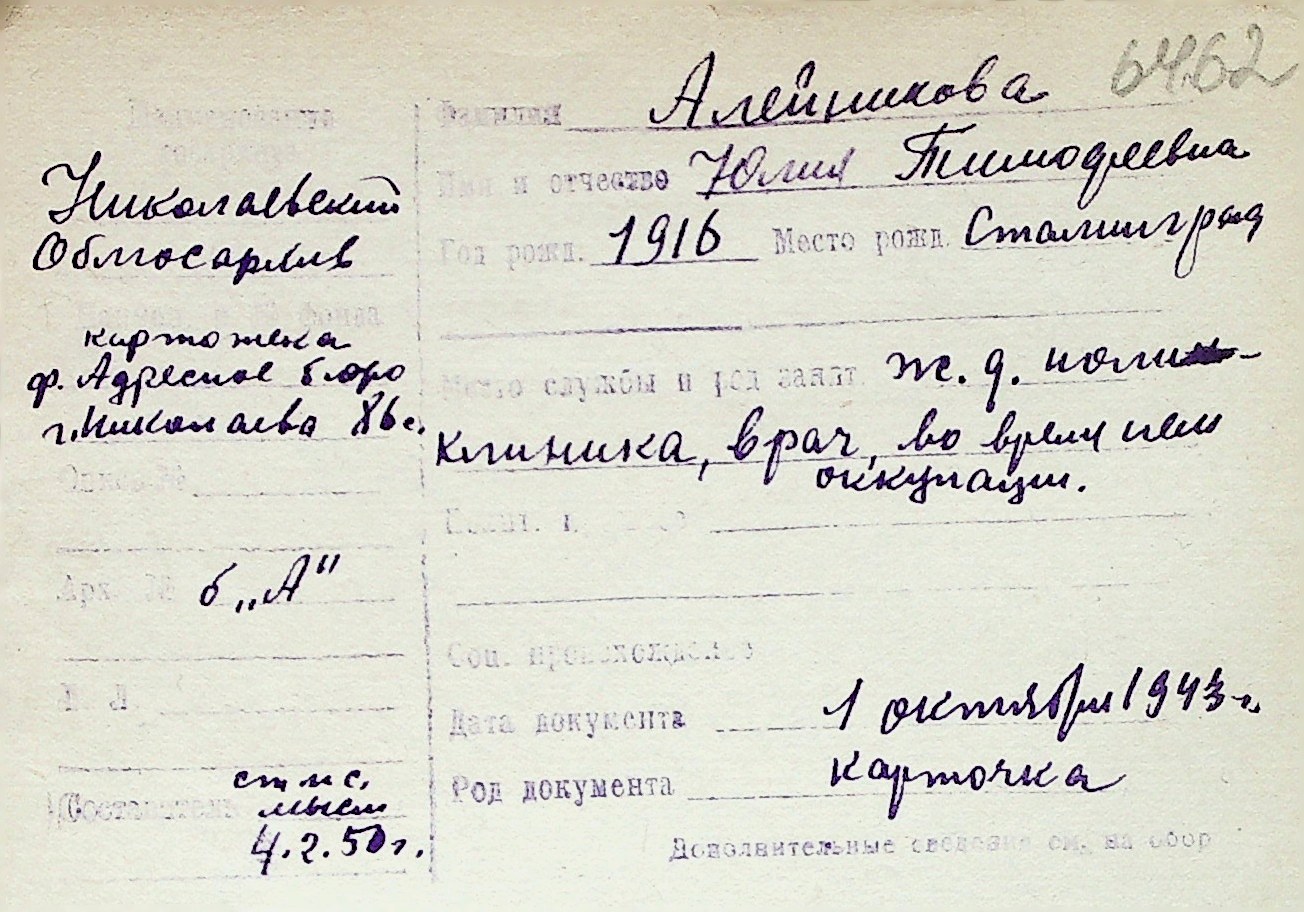 6462
Фамилия Алейникова
Имя и отчество Юлия Тимофеевна
Год рожд. 1916 Место рожд. Сталинград
Место службы и род занят. ж. д. поли-
клиника, врач, во время нем
оккупации.
Соц. происхождение
Дата документа 1 октября 1943 г.
Род документа карточка
Дополнительные сведения см. на обор
Наименование
Николаевский
Облгосархив
фонда
картотека
ф. Адресное бюро
г. Николаева
Опись №
Арх. № б „А"
Л. Л.
Составитель
4.2.50 г.